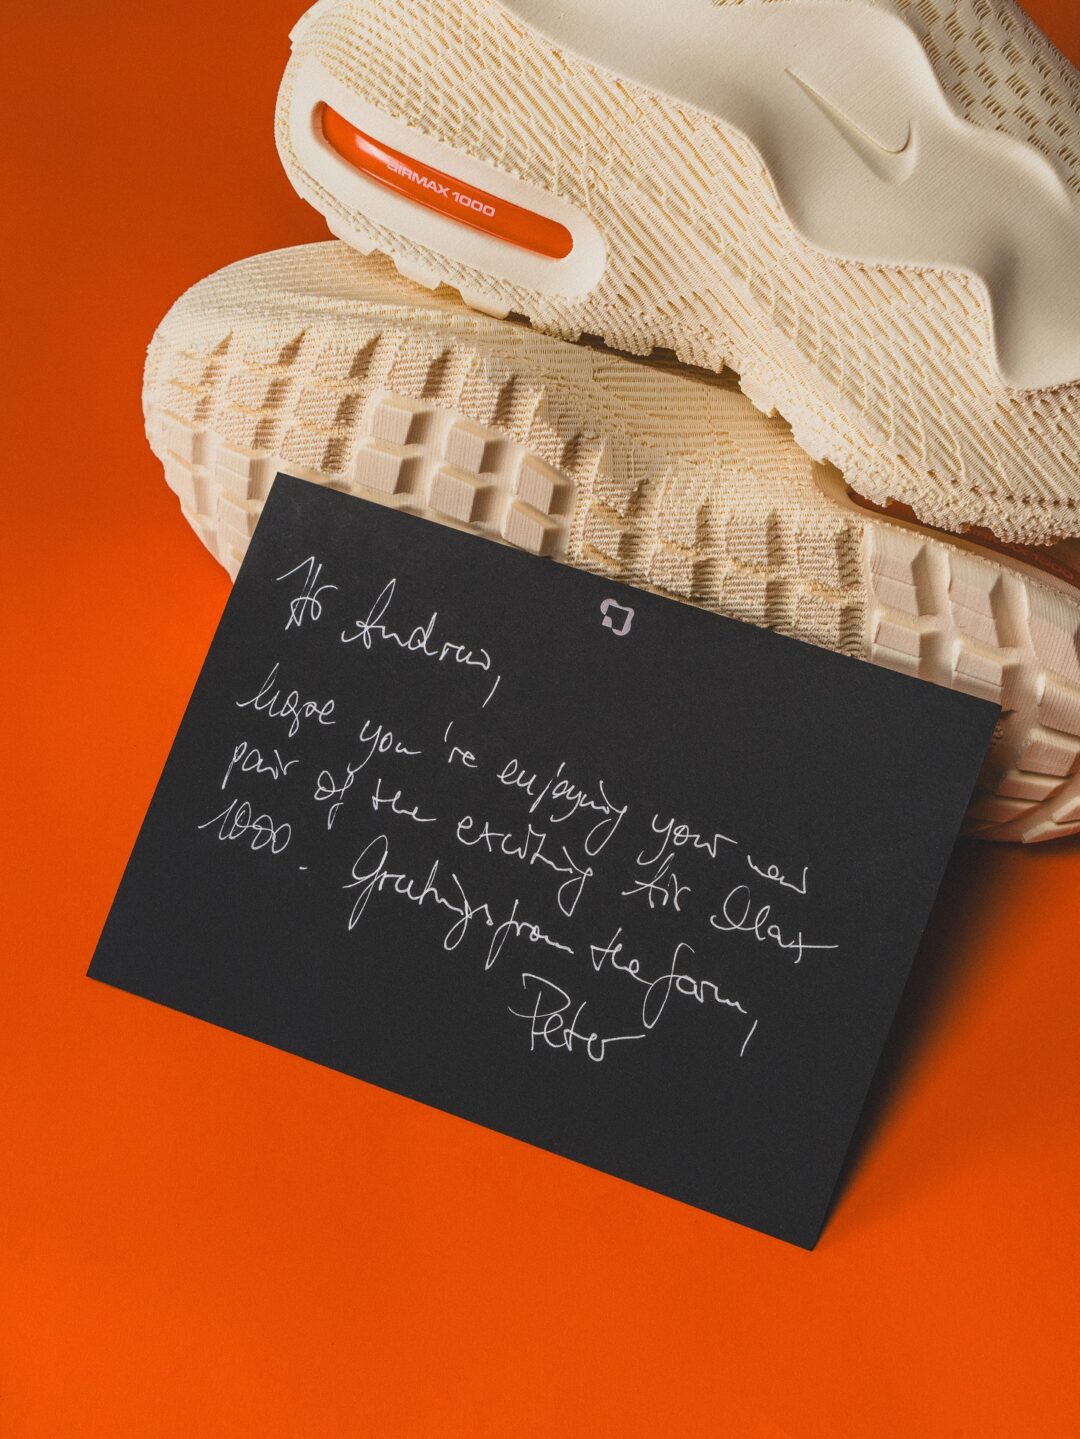 AIRMAX 1000
Hi Andrew,
hope you're enjoying your new
pair of the exciting Air Max
1000. Greetings from the farm,
Peter